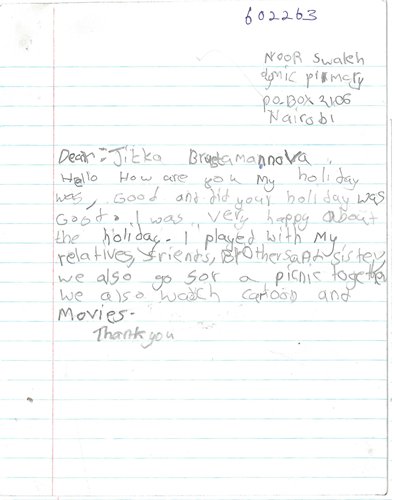 602263
NOOR Swaleh
primary
po.Box 2106
Nairobi
Dear:- Jitka
Hello How are you My holiday
was, Good and did your holiday was
Good. I was very happy about
the holiday. I played with My
relatives, friends, BrOthers and sister,
we also go for a picnic together
we also watch cartoon and
Movies.
Thank you